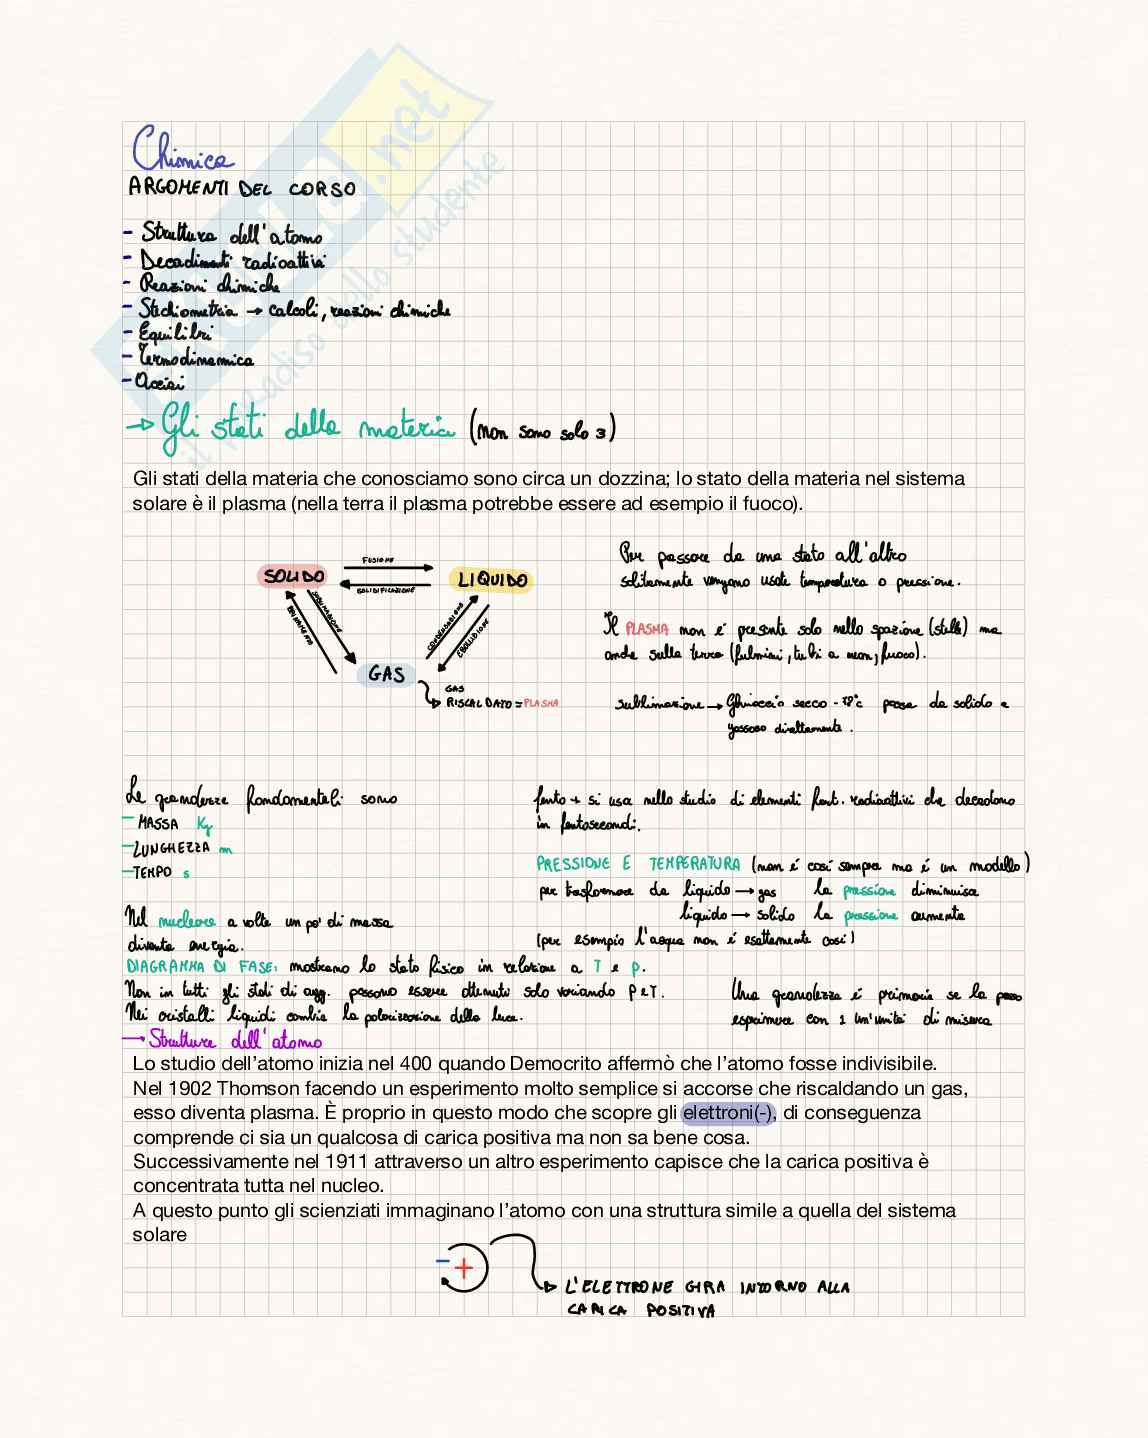 Chimica
ARGOMENTI DEL CORSO
- Struttura dell'atomo
- Decadimenti radioattivi
- Reazioni chimiche
- Stechiometria → calcoli, reazioni chimiche
- Equilibri
- Termodinamica
- Acidi
→ Gli stati della materia (non sono solo 3)
Gli stati della materia che conosciamo sono circa un dozzina; lo stato della materia nel sistema
solare è il plasma (nella terra il plasma potrebbe essere ad esempio il fuoco).
SOLIDO
FUSIONE
SOLIDIFICAZIONE
LIQUIDO
SUBLIMAZIONE
BRINAMENTO
CONDENSAZIONE
EBOLLIZIONE
GAS
GAS
RISCALDATO = PLASMA
Per passare da uno stato all'altro
solitamente vengono usate temperatura o pressione.
Il PLASMA non è presente solo nello spazione (stelle) ma
anche sulla terra (fulmini, tubi a neon, fuoco).
sublimazione → Ghiaccio secco -78°c passa da solido a
gassoso direttamente.
Le grandezze fondamentali sono
- MASSA Kg
- LUNGHEZZA m
- TEMPO s
Nel nucleare a volte un po' di massa
diventa energia.
femto → si usa nello studio di elementi radioattivi che decadono
in femtosecondi.
PRESSIONE E TEMPERATURA (non è così sempre ma è un modello)
per trasformare da liquido → gas la pressione diminuisce
liquido → solido la pressione aumenta
(per esempio l'acqua non è esattamente così)
DIAGRAMMA DI FASE: mostrano lo stato fisico in relazione a T e p.
Non in tutti gli stati di agg. possono essere ottenuti solo variando P e T.
Nei cristalli liquidi cambia la polarizzazione della luce.
Una grandezza è primaria se la posso
esprimere con 1 un'unità di misura
→ Struttura dell'atomo
Lo studio dell'atomo inizia nel 400 quando Democrito affermò che l'atomo fosse indivisibile.
Nel 1902 Thomson facendo un esperimento molto semplice si accorse che riscaldando un gas,
esso diventa plasma. È proprio in questo modo che scopre gli elettroni(-), di conseguenza
comprende ci sia un qualcosa di carica positiva ma non sa bene cosa.
Successivamente nel 1911 attraverso un altro esperimento capisce che la carica positiva è
concentrata tutta nel nucleo.
A questo punto gli scienziati immaginano l'atomo con una struttura simile a quella del sistema
solare
- +
L'ELETTRONE GIRA INTORNO ALLA
CARICA POSITIVA
.net
il paradiso dello studente